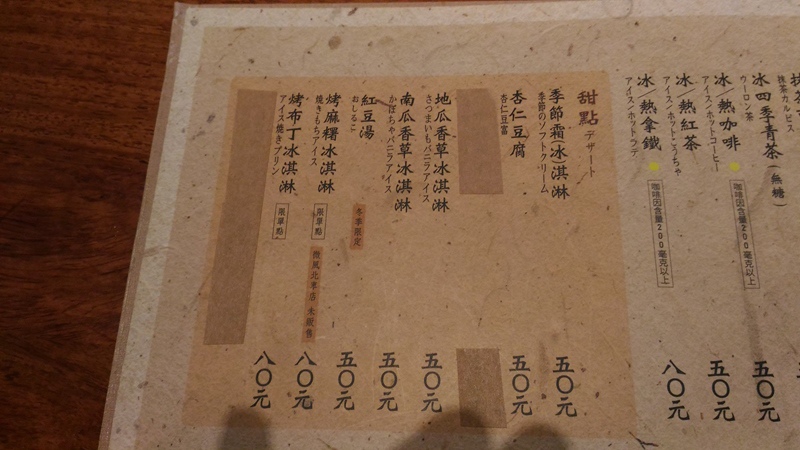 冰四季青茶(無糖)
ウーロン茶
五〇元
冰/熱咖啡
アイス/ホットコーヒー
咖啡因含量200毫克以上
五〇元
冰/熱紅茶
アイス/ホットこうちゃ
五〇元
冰/熱拿鐵
アイス/ホットラテ
咖啡因含量200毫克以上
八〇元
甜點 デザート
季節霜(冰淇淋
季節のソフトクリーム
五〇元
杏仁豆腐
杏仁豆富
五〇元
地瓜香草冰淇淋
さつまいもバニラアイス
五〇元
南瓜香草冰淇淋
かぼちゃバニラアイス
五〇元
紅豆湯
おしるこ
冬季限定
五〇元
烤麻糬冰淇淋
焼きもちアイス
限單點
微風北車店 未販售
八〇元
烤布丁冰淇淋
アイス焼きプリン
限單點
八〇元